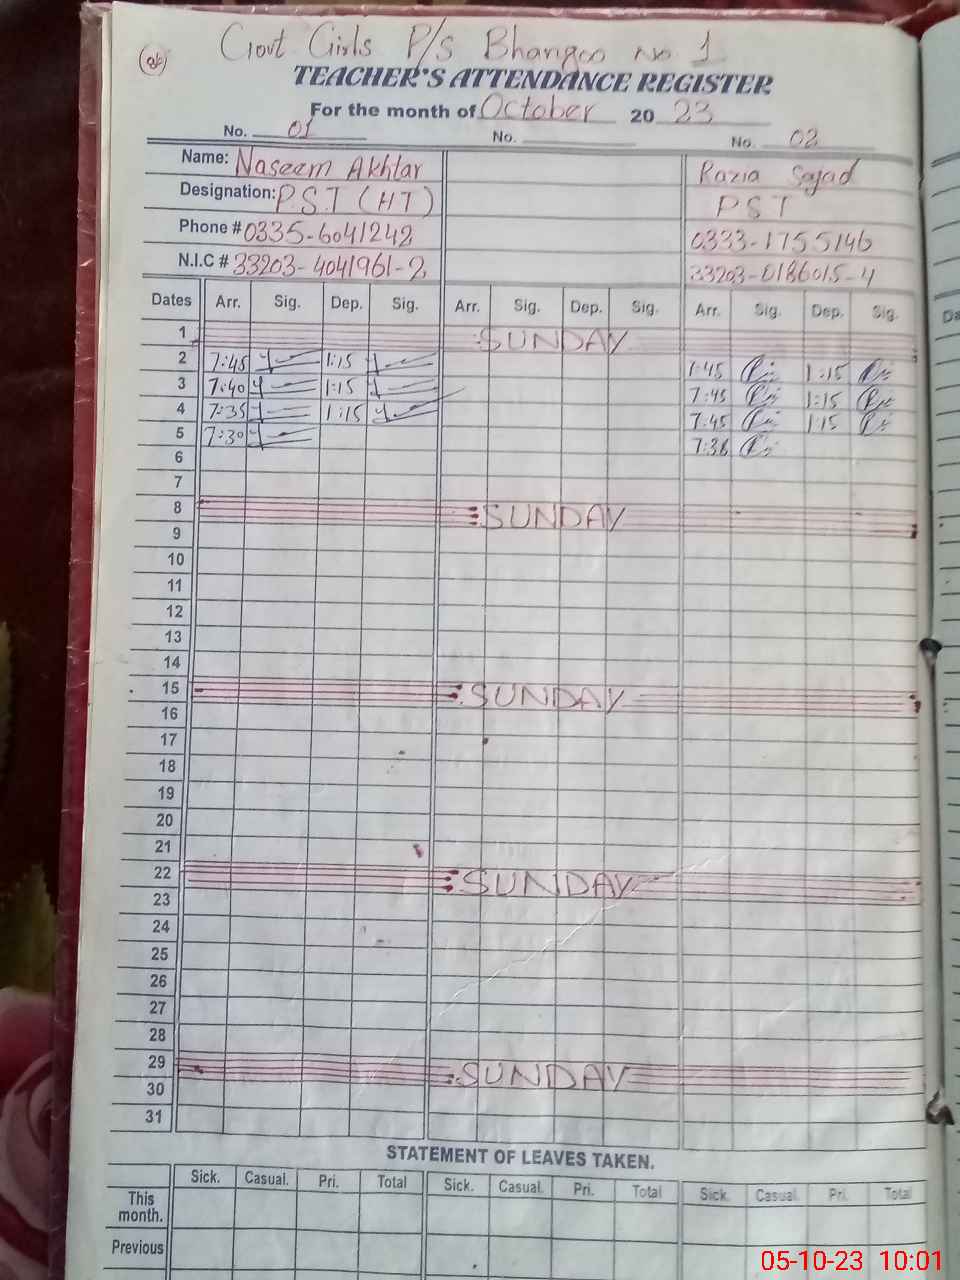 Govt Girls P/S Bhangoo No 1
TEACHER'S ATTENDANCE REGISTER
For the month of October 20 23
No. 01 No. No. 02
Name: Naseem Akhtar Razia Sajad
Designation: P.S.T (HT) PST
Phone # 0335-6041242 0333-1755146
N.I.C # 33203-4041961-2 33203-0186015-4
Dates Arr. Sig. Dep. Sig. Arr. Sig. Dep. Sig. Arr. Sig. Dep. Sig.
1 SUNDAY
2 7:45 1:15 1:45 1:15
3 7:40 1:15 7:45 1:15
4 7:35 1:15 7:45 1:15
5 7:30 7:38
6
7
8 SUNDAY
9
10
11
12
13
14
15 SUNDAY
16
17
18
19
20
21
22 SUNDAY
23
24
25
26
27
28
29 SUNDAY
30
31
STATEMENT OF LEAVES TAKEN.
Sick. Casual. Pri. Total Sick. Casual. Pri. Total Sick. Casual. Pri. Total
This
month.
Previous
05-10-23 10:01